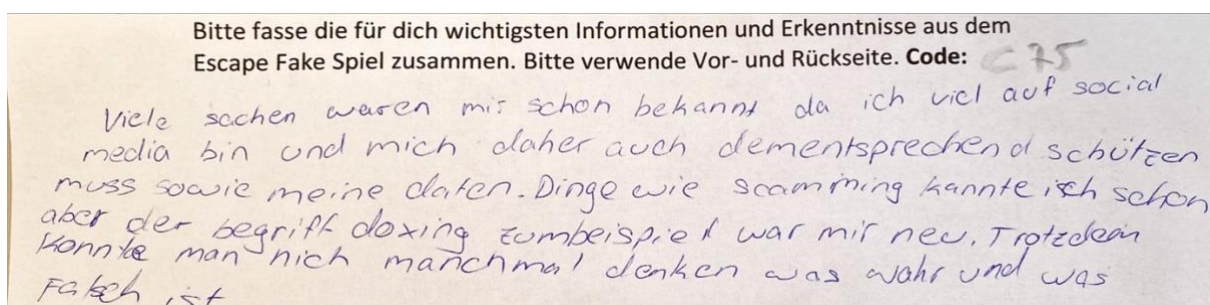 Bitte fasse die für dich wichtigsten Informationen und Erkenntnisse aus dem
Escape Fake Spiel zusammen. Bitte verwende Vor- und Rückseite. Code: C75
Viele sachen waren mir schon bekannt da ich viel auf social
media bin und mich daher auch dementsprechend schützen
muss sowie meine daten. Dinge wie scamming kannte ich schon
aber der begriff doxing zumbeispiel war mir neu. Trotzdem
konnte man nich manchmal denken was wahr und was
Falsch ist